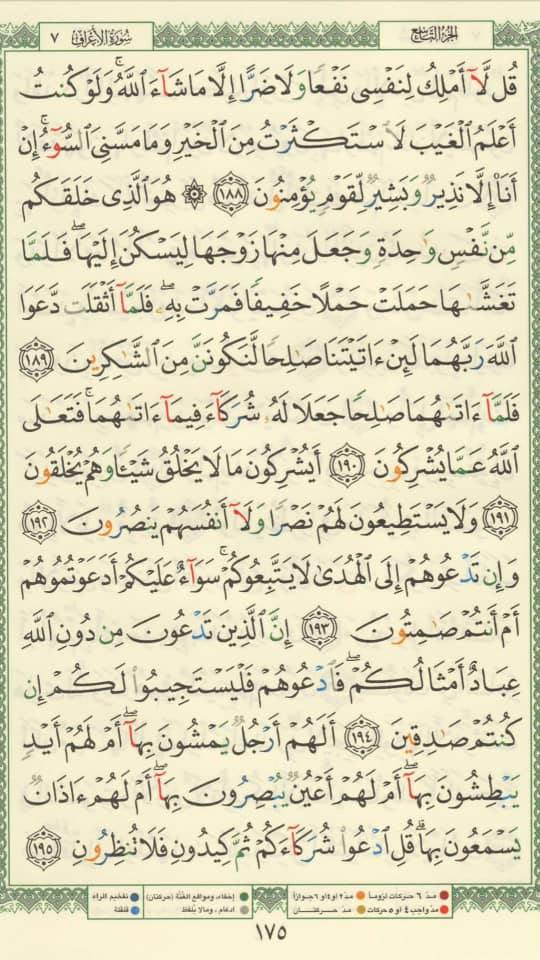 الجزء التاسع
سورة الأعراف ٧
قُل لَّآ أَمْلِكُ لِنَفْسِى نَفْعًا وَلَا ضَرًّا إِلَّا مَا شَآءَ ٱللَّهُ ۚ وَلَوْ كُنتُ
أَعْلَمُ ٱلْغَيْبَ لَٱسْتَكْثَرْتُ مِنَ ٱلْخَيْرِ وَمَا مَسَّنِىَ ٱلسُّوٓءُ ۚ إِنْ
أَنَا۠ إِلَّا نَذِيرٌ وَبَشِيرٌ لِّقَوْمٍ يُؤْمِنُونَ ١٨٨ ۞ هُوَ ٱلَّذِى خَلَقَكُم
مِّن نَّفْسٍ وَٰحِدَةٍ وَجَعَلَ مِنْهَا زَوْجَهَا لِيَسْكُنَ إِلَيْهَا ۖ فَلَمَّا
تَغَشَّىٰهَا حَمَلَتْ حَمْلًا خَفِيفًا فَمَرَّتْ بِهِۦ ۖ فَلَمَّآ أَثْقَلَت دَّعَوَا
ٱللَّهَ رَبَّهُمَا لَئِنْ ءَاتَيْتَنَا صَٰلِحًا لَّنَكُونَنَّ مِنَ ٱلشَّٰكِرِينَ ١٨٩
فَلَمَّآ ءَاتَىٰهُمَا صَٰلِحًا جَعَلَا لَهُۥ شُرَكَآءَ فِيمَآ ءَاتَىٰهُمَا ۚ فَتَعَٰلَى
ٱللَّهُ عَمَّا يُشْرِكُونَ ١٩٠ أَيُشْرِكُونَ مَا لَا يَخْلُقُ شَيْـًٔا وَهُمْ يُخْلَقُونَ
١٩١ وَلَا يَسْتَطِيعُونَ لَهُمْ نَصْرًا وَلَآ أَنفُسَهُمْ يَنصُرُونَ ١٩٢
وَإِن تَدْعُوهُمْ إِلَى ٱلْهُدَىٰ لَا يَتَّبِعُوكُمْ ۚ سَوَآءٌ عَلَيْكُمْ أَدَعَوْتُمُوهُمْ
أَمْ أَنتُمْ صَٰمِتُونَ ١٩٣ إِنَّ ٱلَّذِينَ تَدْعُونَ مِن دُونِ ٱللَّهِ
عِبَادٌ أَمْثَالُكُمْ ۖ فَٱدْعُوهُمْ فَلْيَسْتَجِيبُوا۟ لَكُمْ إِن
كُنتُمْ صَٰدِقِينَ ١٩٤ أَلَهُمْ أَرْجُلٌ يَمْشُونَ بِهَآ ۖ أَمْ لَهُمْ أَيْدٍ
يَبْطِشُونَ بِهَآ ۖ أَمْ لَهُمْ أَعْيُنٌ يُبْصِرُونَ بِهَآ ۖ أَمْ لَهُمْ ءَاذَانٌ
يَسْمَعُونَ بِهَا ۗ قُلِ ٱدْعُوا۟ شُرَكَآءَكُمْ ثُمَّ كِيدُونِ فَلَا تُنظِرُونِ ١٩٥
مد ٦ حركات لزوماً مد ٢ او ٤ او ٦ جوازاً إخفاء، ومواقع الغنّة (حركتان) تفخيم الراء
مد واجب ٤ او ٥ حركات مد حركتان ادغام، ومالا يلفظ قلقلة
١٧٥